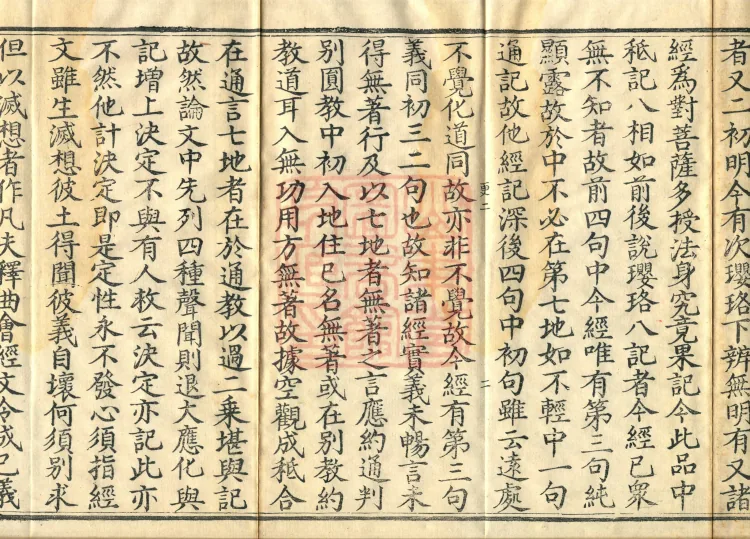 者又二初明今有次瓔珞下辨無明有又諸
經為對菩薩多授法身究竟果記今此品中
秪記八相如前後說瓔珞八記者今經已衆
無不知者故前四句中今經唯有第三句純
顯露故於中不必在第七地如不輕中一句
通記故他經記深後四句中初句雖云遠處
不覺化道同故亦非不覺故今經有第三句
義同初三二句也故知諸經實義未暢言未
得無著行及以七地者無著之言應約通判
別圓教中初入地住已名無著或在別教約
教道耳入無功用方無著故據空觀成秪合
在通言七地者在於通教以過二乗堪與記
故然論文中先列四種聲聞則退大應化與
記增上決定不與有人救云決定亦記此亦
不然他計決定即是定性永不發心須指經
文雖生滅想彼土得聞彼義自壞何須別求
但以滅想者作凡夫釋曲會經文令成已義